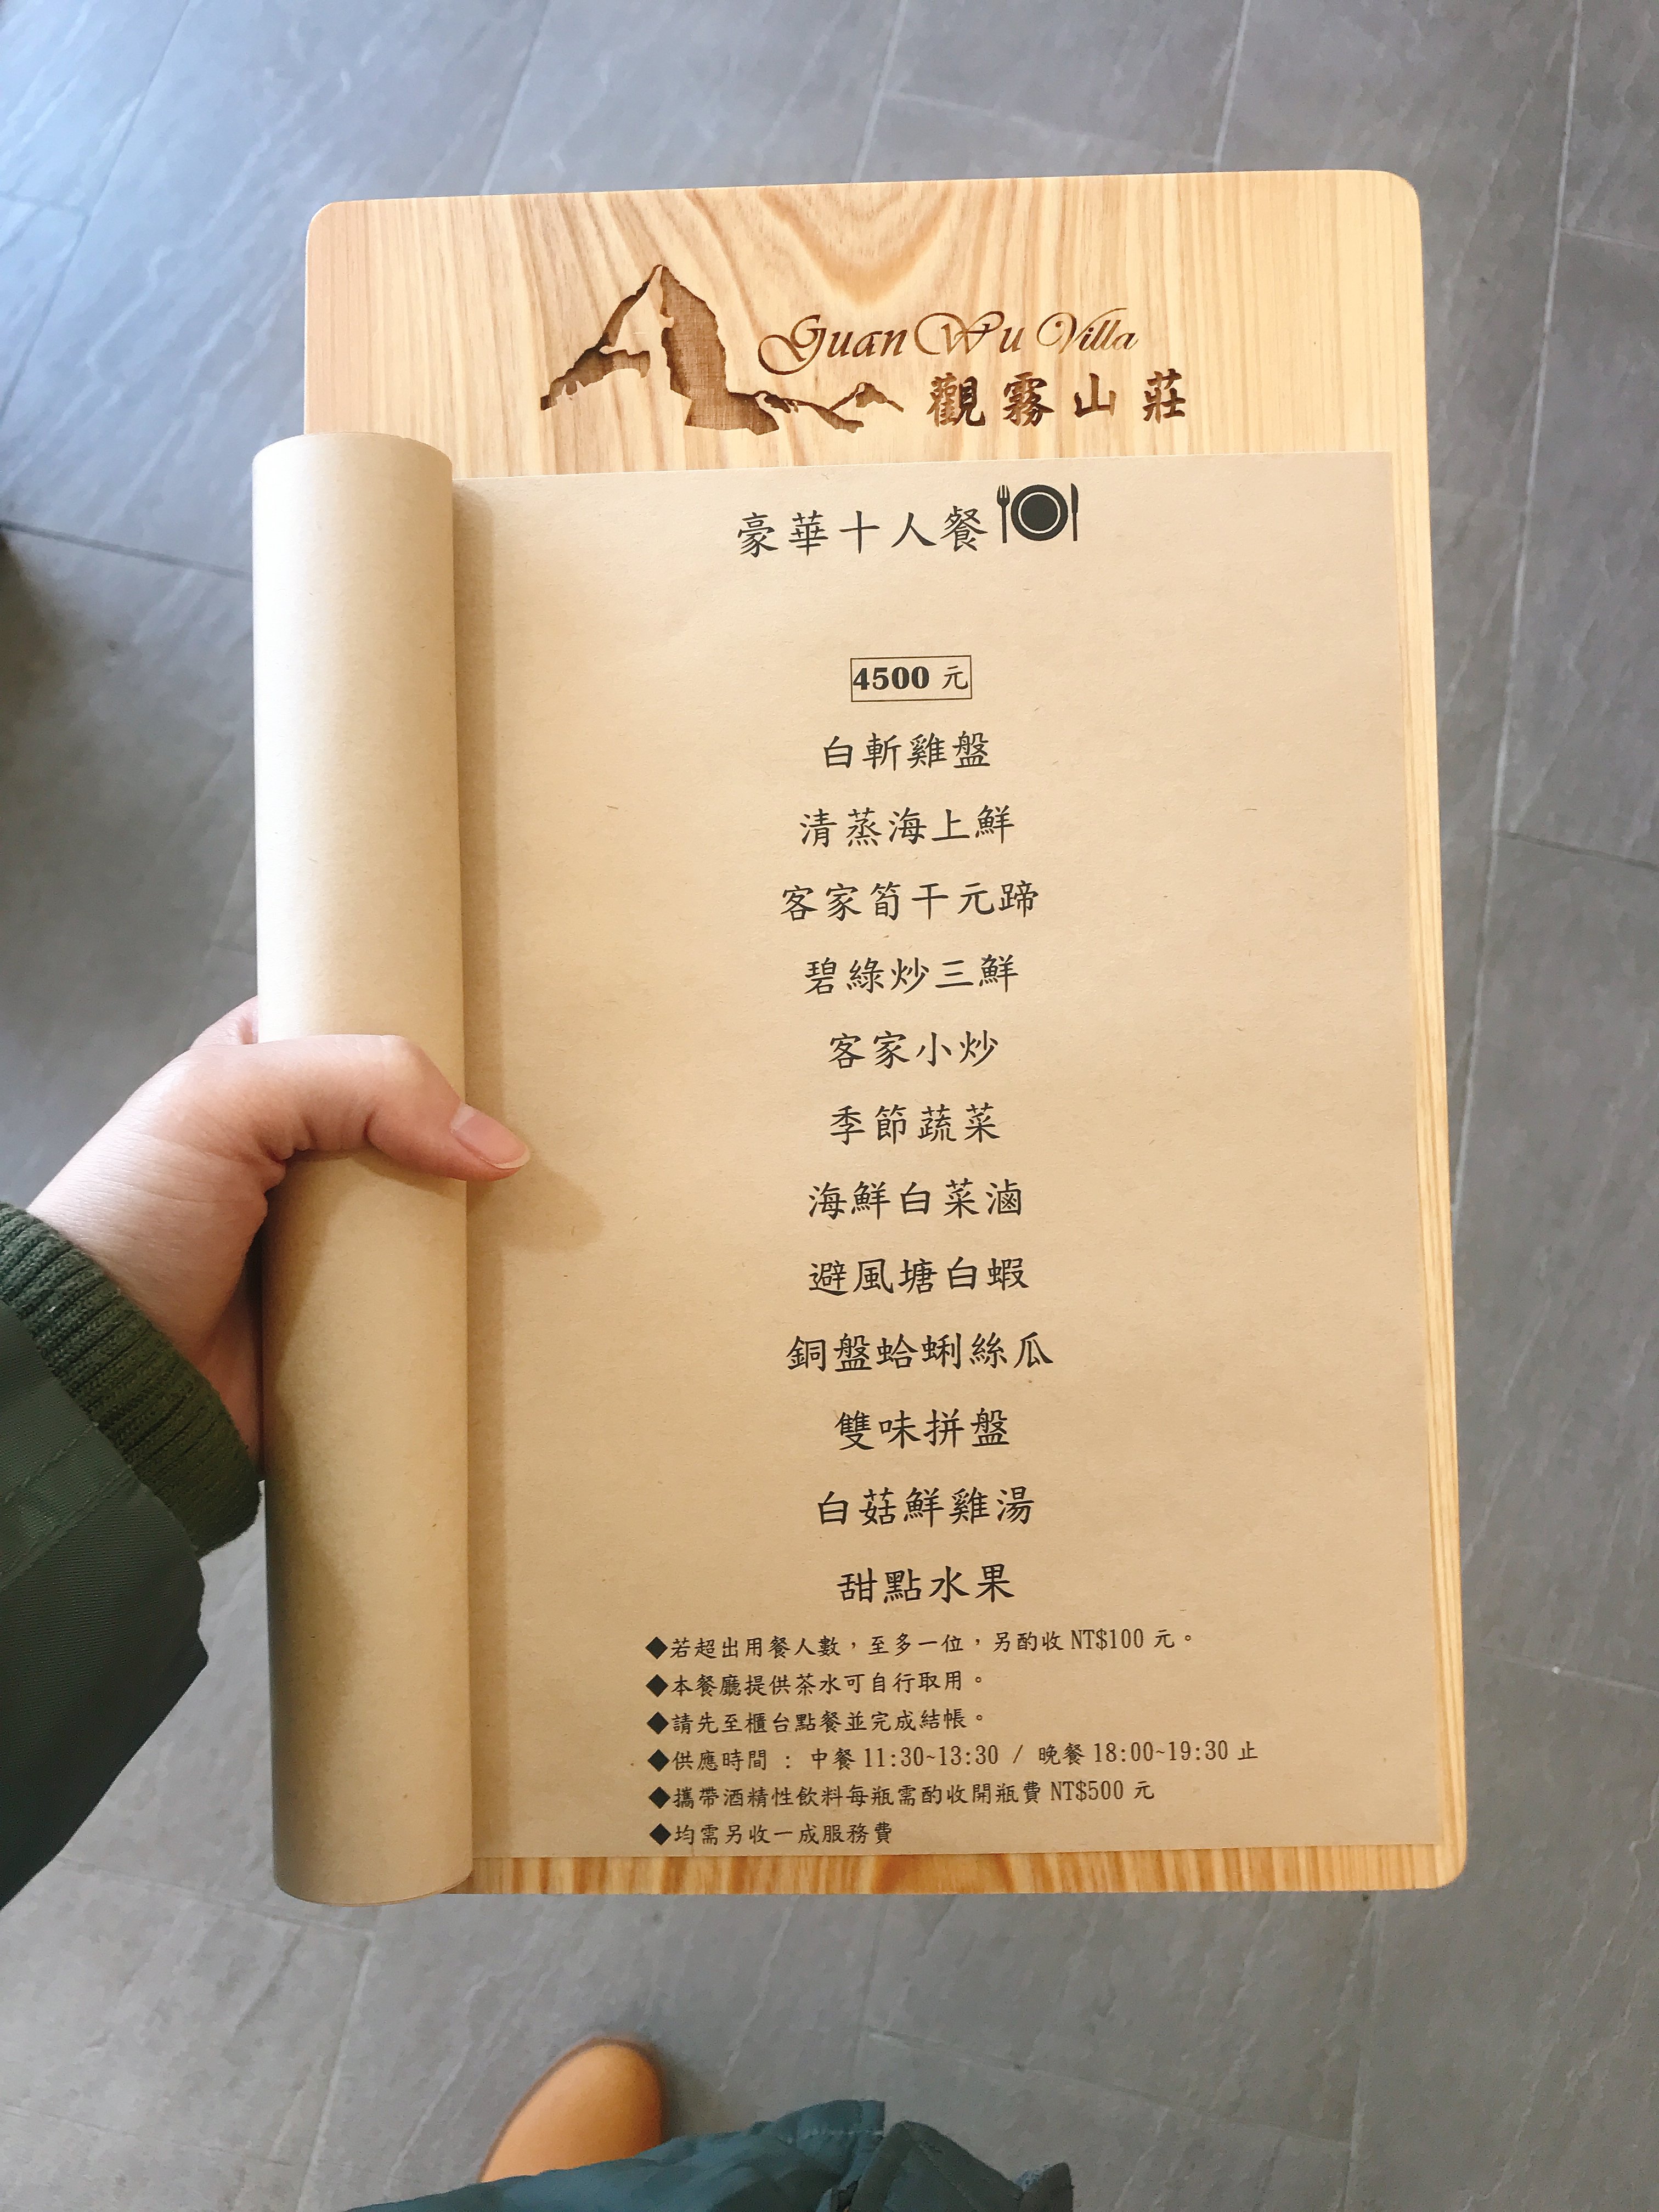 Guan Wu Villa
觀霧山莊
豪華十人餐
4500 元
白斬雞盤
清蒸海上鮮
客家筍干元蹄
碧綠炒三鮮
客家小炒
季節蔬菜
海鮮白菜滷
避風塘白蝦
銅盤蛤蜊絲瓜
雙味拼盤
白菇鮮雞湯
甜點水果
◆若超出用餐人數，至多一位，另酌收 NT$100 元。
◆本餐廳提供茶水可自行取用。
◆請先至櫃台點餐並完成結帳。
◆供應時間 : 中餐 11:30~13:30 / 晚餐 18:00~19:30 止
◆攜帶酒精性飲料每瓶需酌收開瓶費 NT$500 元
◆均需另收一成服務費